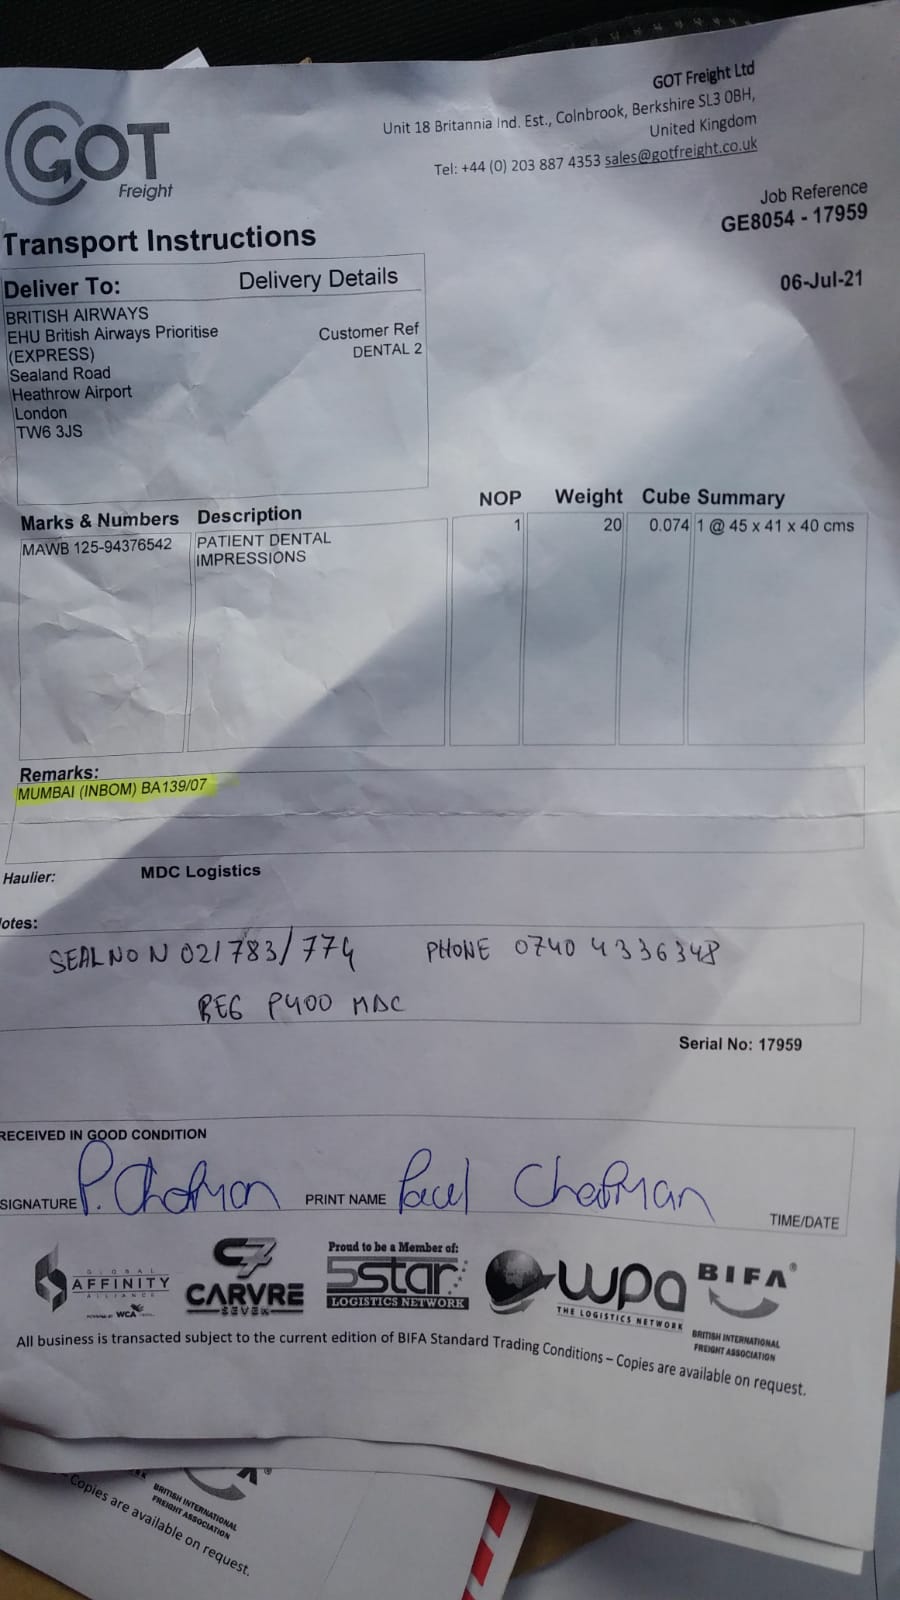 GOT
Freight
GOT Freight Ltd
Unit 18 Britannia Ind. Est., Colnbrook, Berkshire SL3 0BH,
United Kingdom
Tel: +44 (0) 203 887 4353 sales@gotfreight.co.uk
Job Reference
GE8054 - 17959
06-Jul-21
Transport Instructions
Deliver To: Delivery Details
BRITISH AIRWAYS
EHU British Airways Prioritise
(EXPRESS)
Sealand Road
Heathrow Airport
London
TW6 3JS
Customer Ref
DENTAL 2
Marks & Numbers Description NOP Weight Cube Summary
MAWB 125-94376542 PATIENT DENTAL 1 20 0.074 1 @ 45 x 41 x 40 cms
IMPRESSIONS
Remarks:
MUMBAI (INBOM) BA139/07
Haulier: MDC Logistics
otes:
SEAL NO N 021783/774 PHONE 0740 4336348
REG P400 MDC
Serial No: 17959
RECEIVED IN GOOD CONDITION
SIGNATURE P. Chapman PRINT NAME Paul Chapman TIME/DATE
GLOBAL
AFFINITY
ALLIANCE
POWERED BY WCA
CARVRE
SEVEN
Proud to be a Member of:
5star
LOGISTICS NETWORK
wpa
THE LOGISTICS NETWORK
BIFA®
BRITISH INTERNATIONAL
FREIGHT ASSOCIATION
All business is transacted subject to the current edition of BIFA Standard Trading Conditions – Copies are available on request.
BRITISH INTERNATIONAL
FREIGHT ASSOCIATION
Copies are available on request.